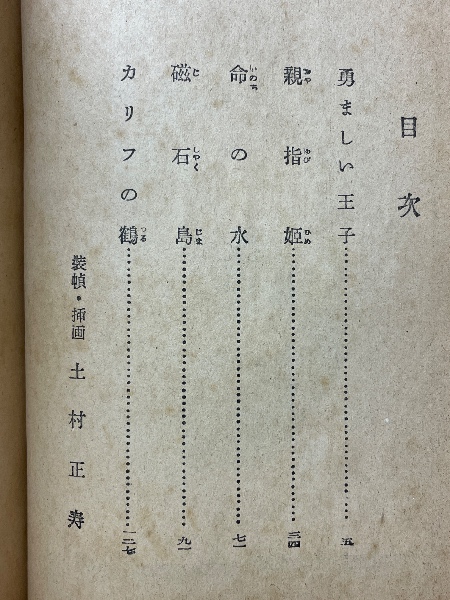 目次
勇ましい王子……………五
親指姫……………三四
命の水……………七一
磁石島……………九一
カリフの鶴……………一二七
装幀・挿画 土村正寿